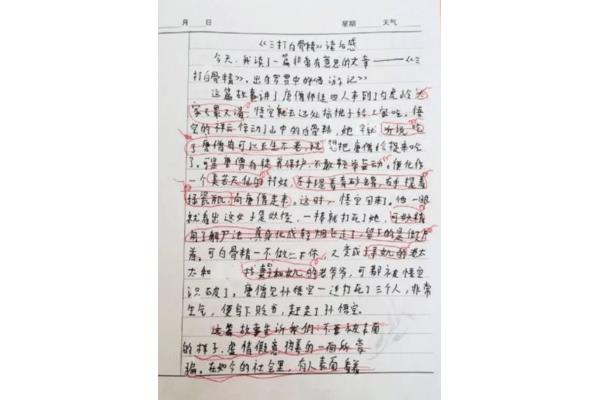 月 日 星期 天气
《三打白骨精》读后感
今天,我读了一篇非常有意思的文章——《三
打白骨精》,出自罗贯中的《西游记》
这篇故事讲了唐僧师徒四人来到了白虎岭
悟空就去远处给桃子给上 吃。悟
空的 惊动了山中的白骨精,她 听说吃
了唐僧肉可以长生不老,就想把唐僧给捉来吃
了。可是唐僧有徒弟保护,不敢轻举妄动。便化作
一个美若天仙的村姑,左手提着青砂罐,右手提着
绿瓷瓶,向唐僧走来。这时,悟空回来了。他一眼
就看出这女子是妖怪,一棒就打死了她,可妖精
用了解尸法,真身化成轻烟飞走了,留下的是
。可白骨精一不做二不休,又变成 的老太
太和 的老爷爷,可都被悟空
识破了,唐僧见孙悟空一连打死了三个人,非常
生气,便写下贬书,赶走了孙悟空。
这篇故事告诉我们:不要被表面
的样子,虚情假意 的一面所蒙
骗。在如今的社会里,有人表面看着